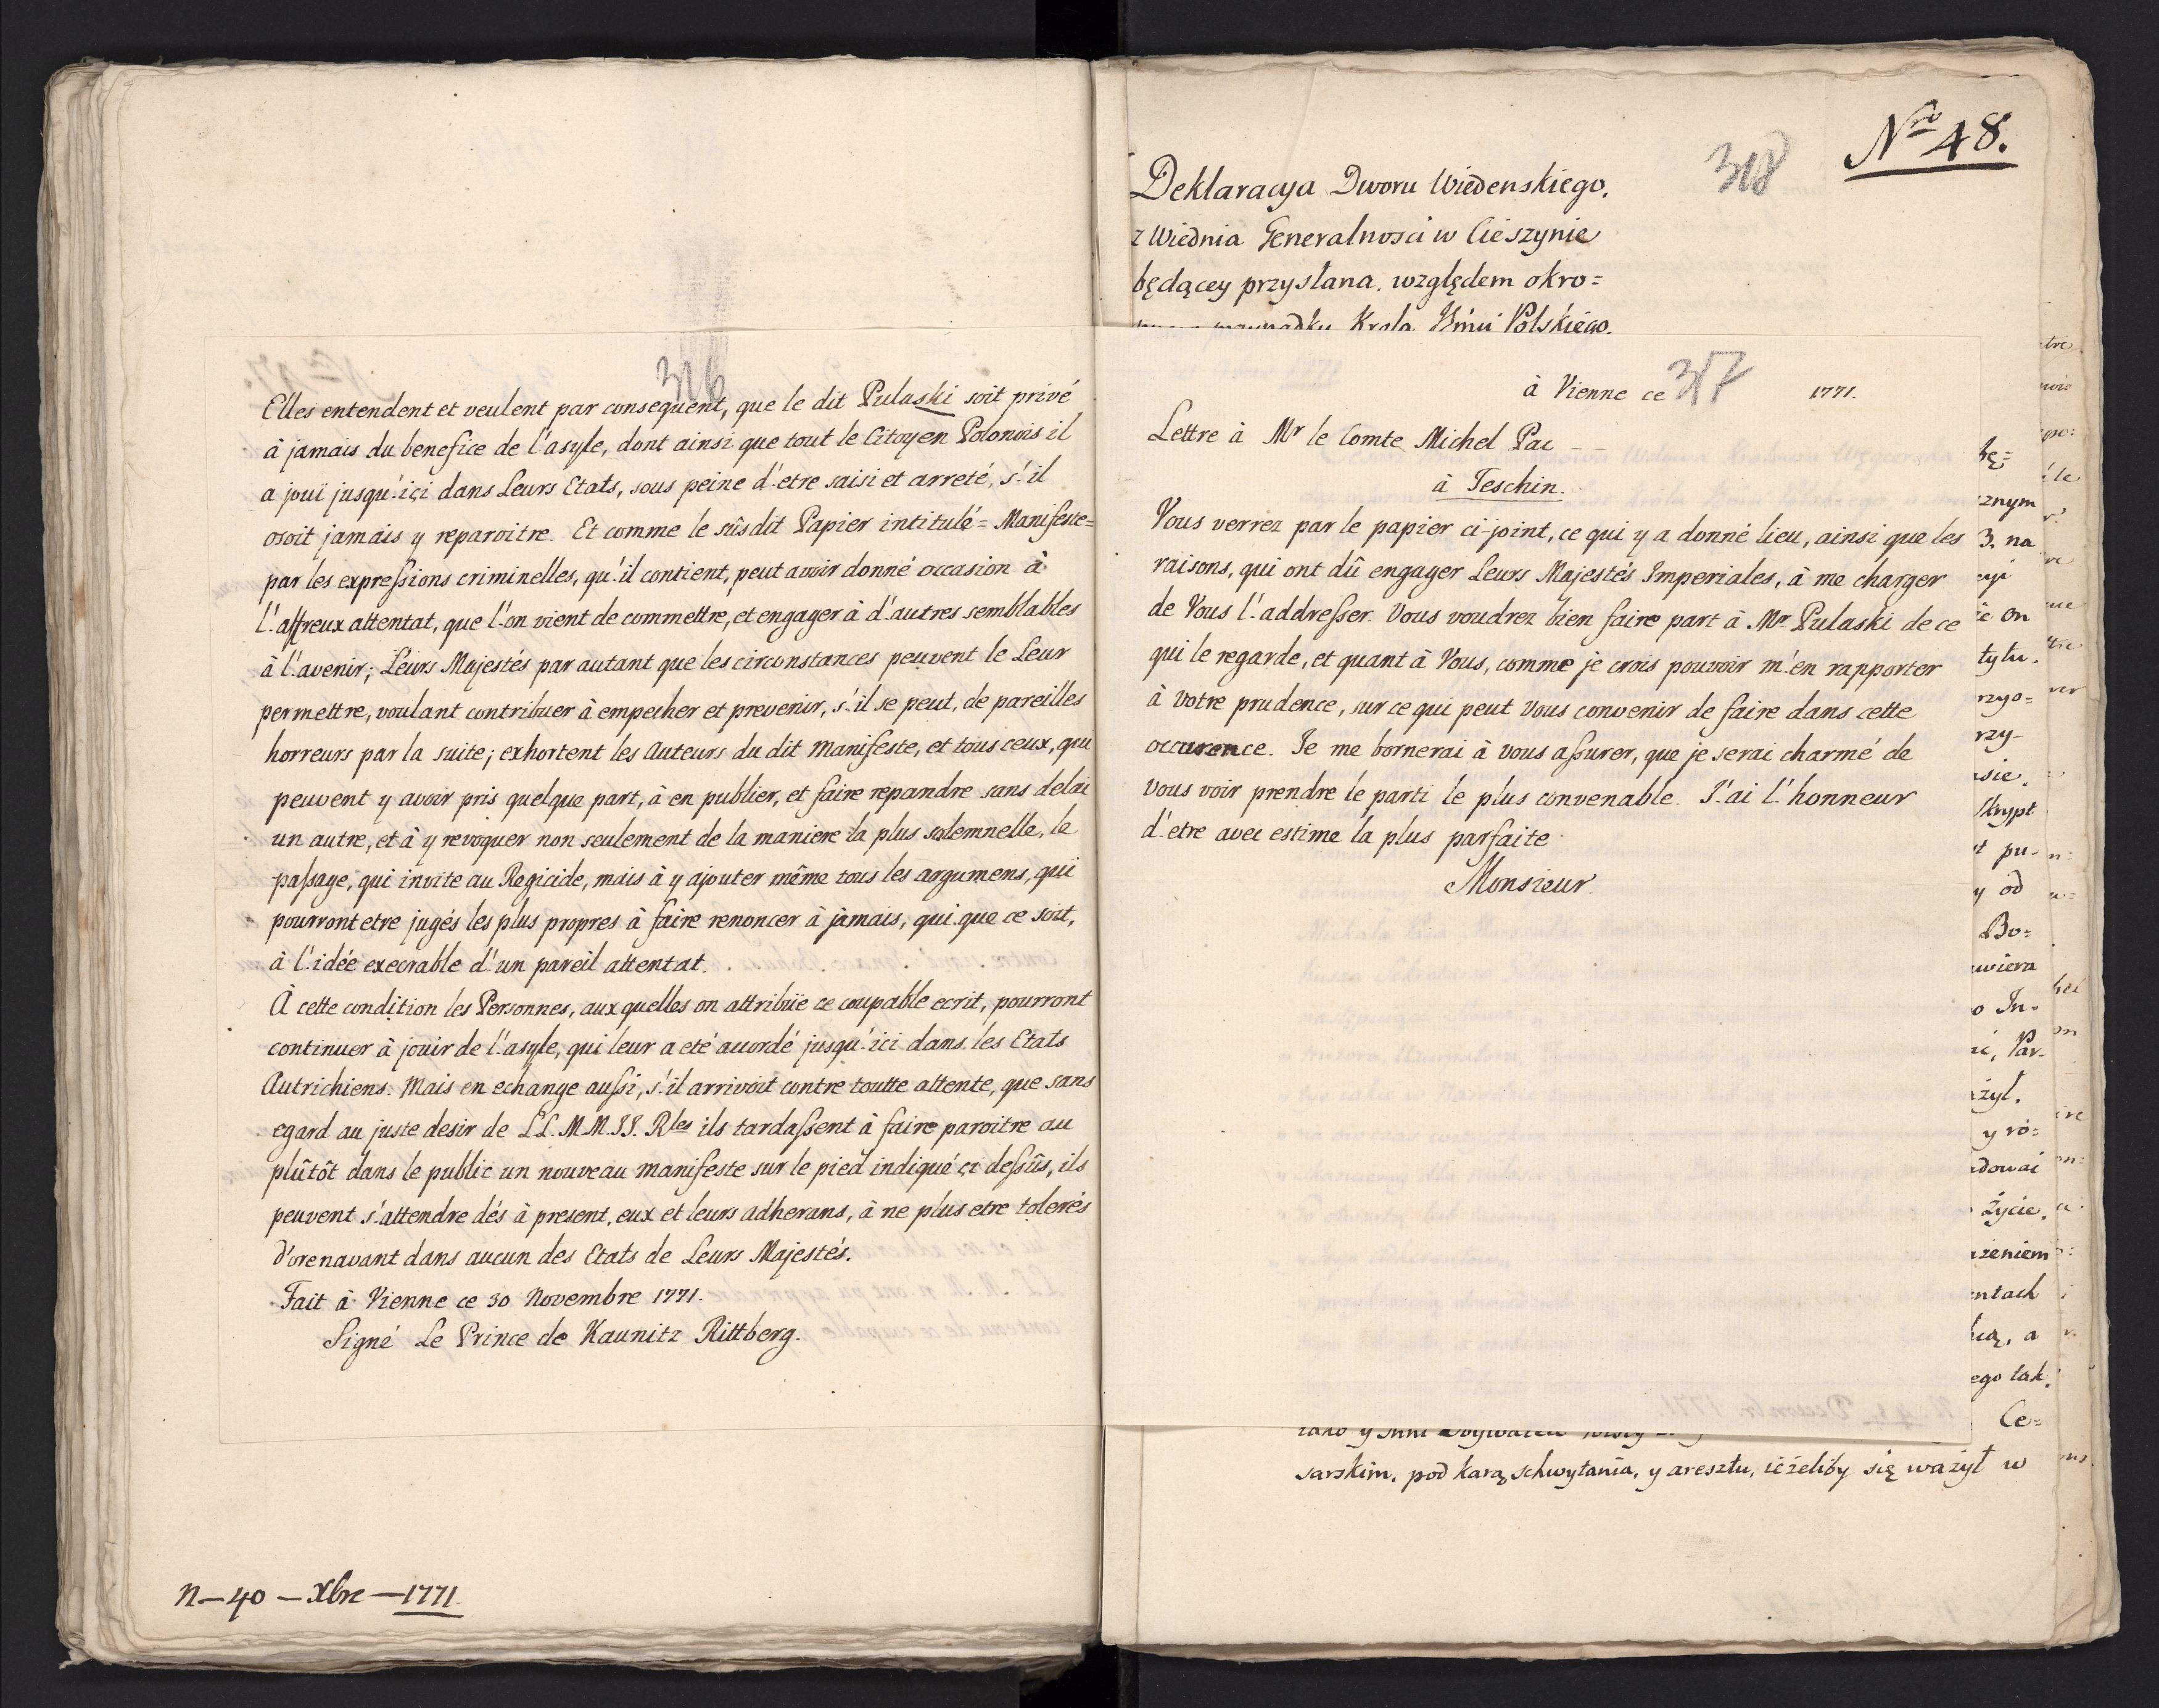 316
Elles entendent et veulent par consequent, que le dit Pulaski soit privé
à jamais du benefice de l'asyle, dont ainsi que tout le Citoyen Polonois il
a jouï jusqu'ici dans Leurs Etats, sous peine d'etre saisi et arreté, s'il
osoit jamais y reparoitre. Et comme le sûsdit Papier intitulé = Manifeste=
par les expressions criminelles, qu'il contient, peut avoir donné occasion à
l'affreux attentat, que l'on vient de commettre, et engager à d'autres semblables
à l'avenir; Leurs Majestés par autant que les circonstances peuvent le Leur
permettre, voulant contribuer à empecher et prevenir, s'il se peut, de pareilles
horreurs par la suite; exhortent les Auteurs du dit Manifeste, et tous ceux, qui
peuvent y avoir pris quelque part, à en publier, et faire repandre sans delai
un autre, et à y revoquer non seulement de la maniere la plus solemnelle, le
passage, qui invite au Regicide, mais à y ajouter même tous les argumens, qui
pourront etre jugés les plus propres à faire renoncer à jamais, qui que ce soit,
à l'idée execrable d'un pareil attentat.
À cette condition les Personnes, aux quelles on attribüe ce coupable ecrit, pourront
continuer à jouir de l'asyle, qui leur a eté accordé jusqu'ici dans les Etats
Autrichiens. Mais en echange aussi, s'il arrivoit contre toutte attente, que sans
egard au juste desir de LL. MM. II. Rles ils tardassent à faire paroitre au
plûtôt dans le public un nouveau manifeste sur le pied indiqué ci dessûs, ils
peuvent s'attendre dés à present, eux et leurs adherans, à ne plus etre tolerés
d'orenavant dans aucun des Etats de Leurs Majestés.
Fait à Vienne ce 30 Novembre 1771.
Signé Le Prince de Kaunitz Rittberg.
n—40—Xbre—1771.
Nro 48.
318
Deklaracya Dworu Wiedenskiego.
z Wiednia Generalnosci w Cieszynie
będącey przysłana, względem okro=
przypadku Krola Jmci Polskiego.
317
à Vienne ce 1771.
Lettre à Mr le Comte Michel Pac
à Teschin.
Vous verrez par le papier ci-joint, ce qui y a donné lieu, ainsi que les
raisons, qui ont dû engager Leurs Majestés Imperiales, à me charger
de Vous l'addresser. Vous voudrez bien faire part à Mr Pulaski de ce
qui le regarde, et quant à Vous, comme je crois pouvoir m'en rapporter
à votre prudence, sur ce qui peut Vous convenir de faire dans cette
occurence. Je me bornerai à vous assurer, que je serai charmé de
vous voir prendre le parti le plus convenable. J'ai l'honneur
d'etre avec estime la plus parfaite
Monsieur.
bę=
znym
3. na
on
tytu.
rzyo=
rzy-
sie.
Skrypt
pu-
y od
Bo=
wiera
o In=
Par-
ażył.
y ro=
dowai
życie.
żeniem
ntach
a
ego tak
Ce=
sarskim, pod karą schwytania, y aresztu, ieżeliby się ważył w